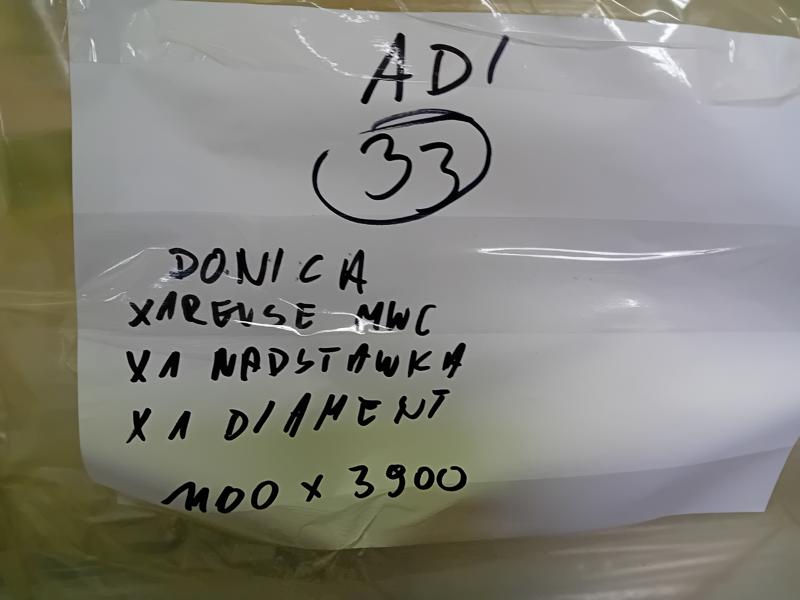 ADI
33
DONICA
X1 REUSE MWC
X1 NADSTAWKA
X1 DIAMENT
1100 x 3900